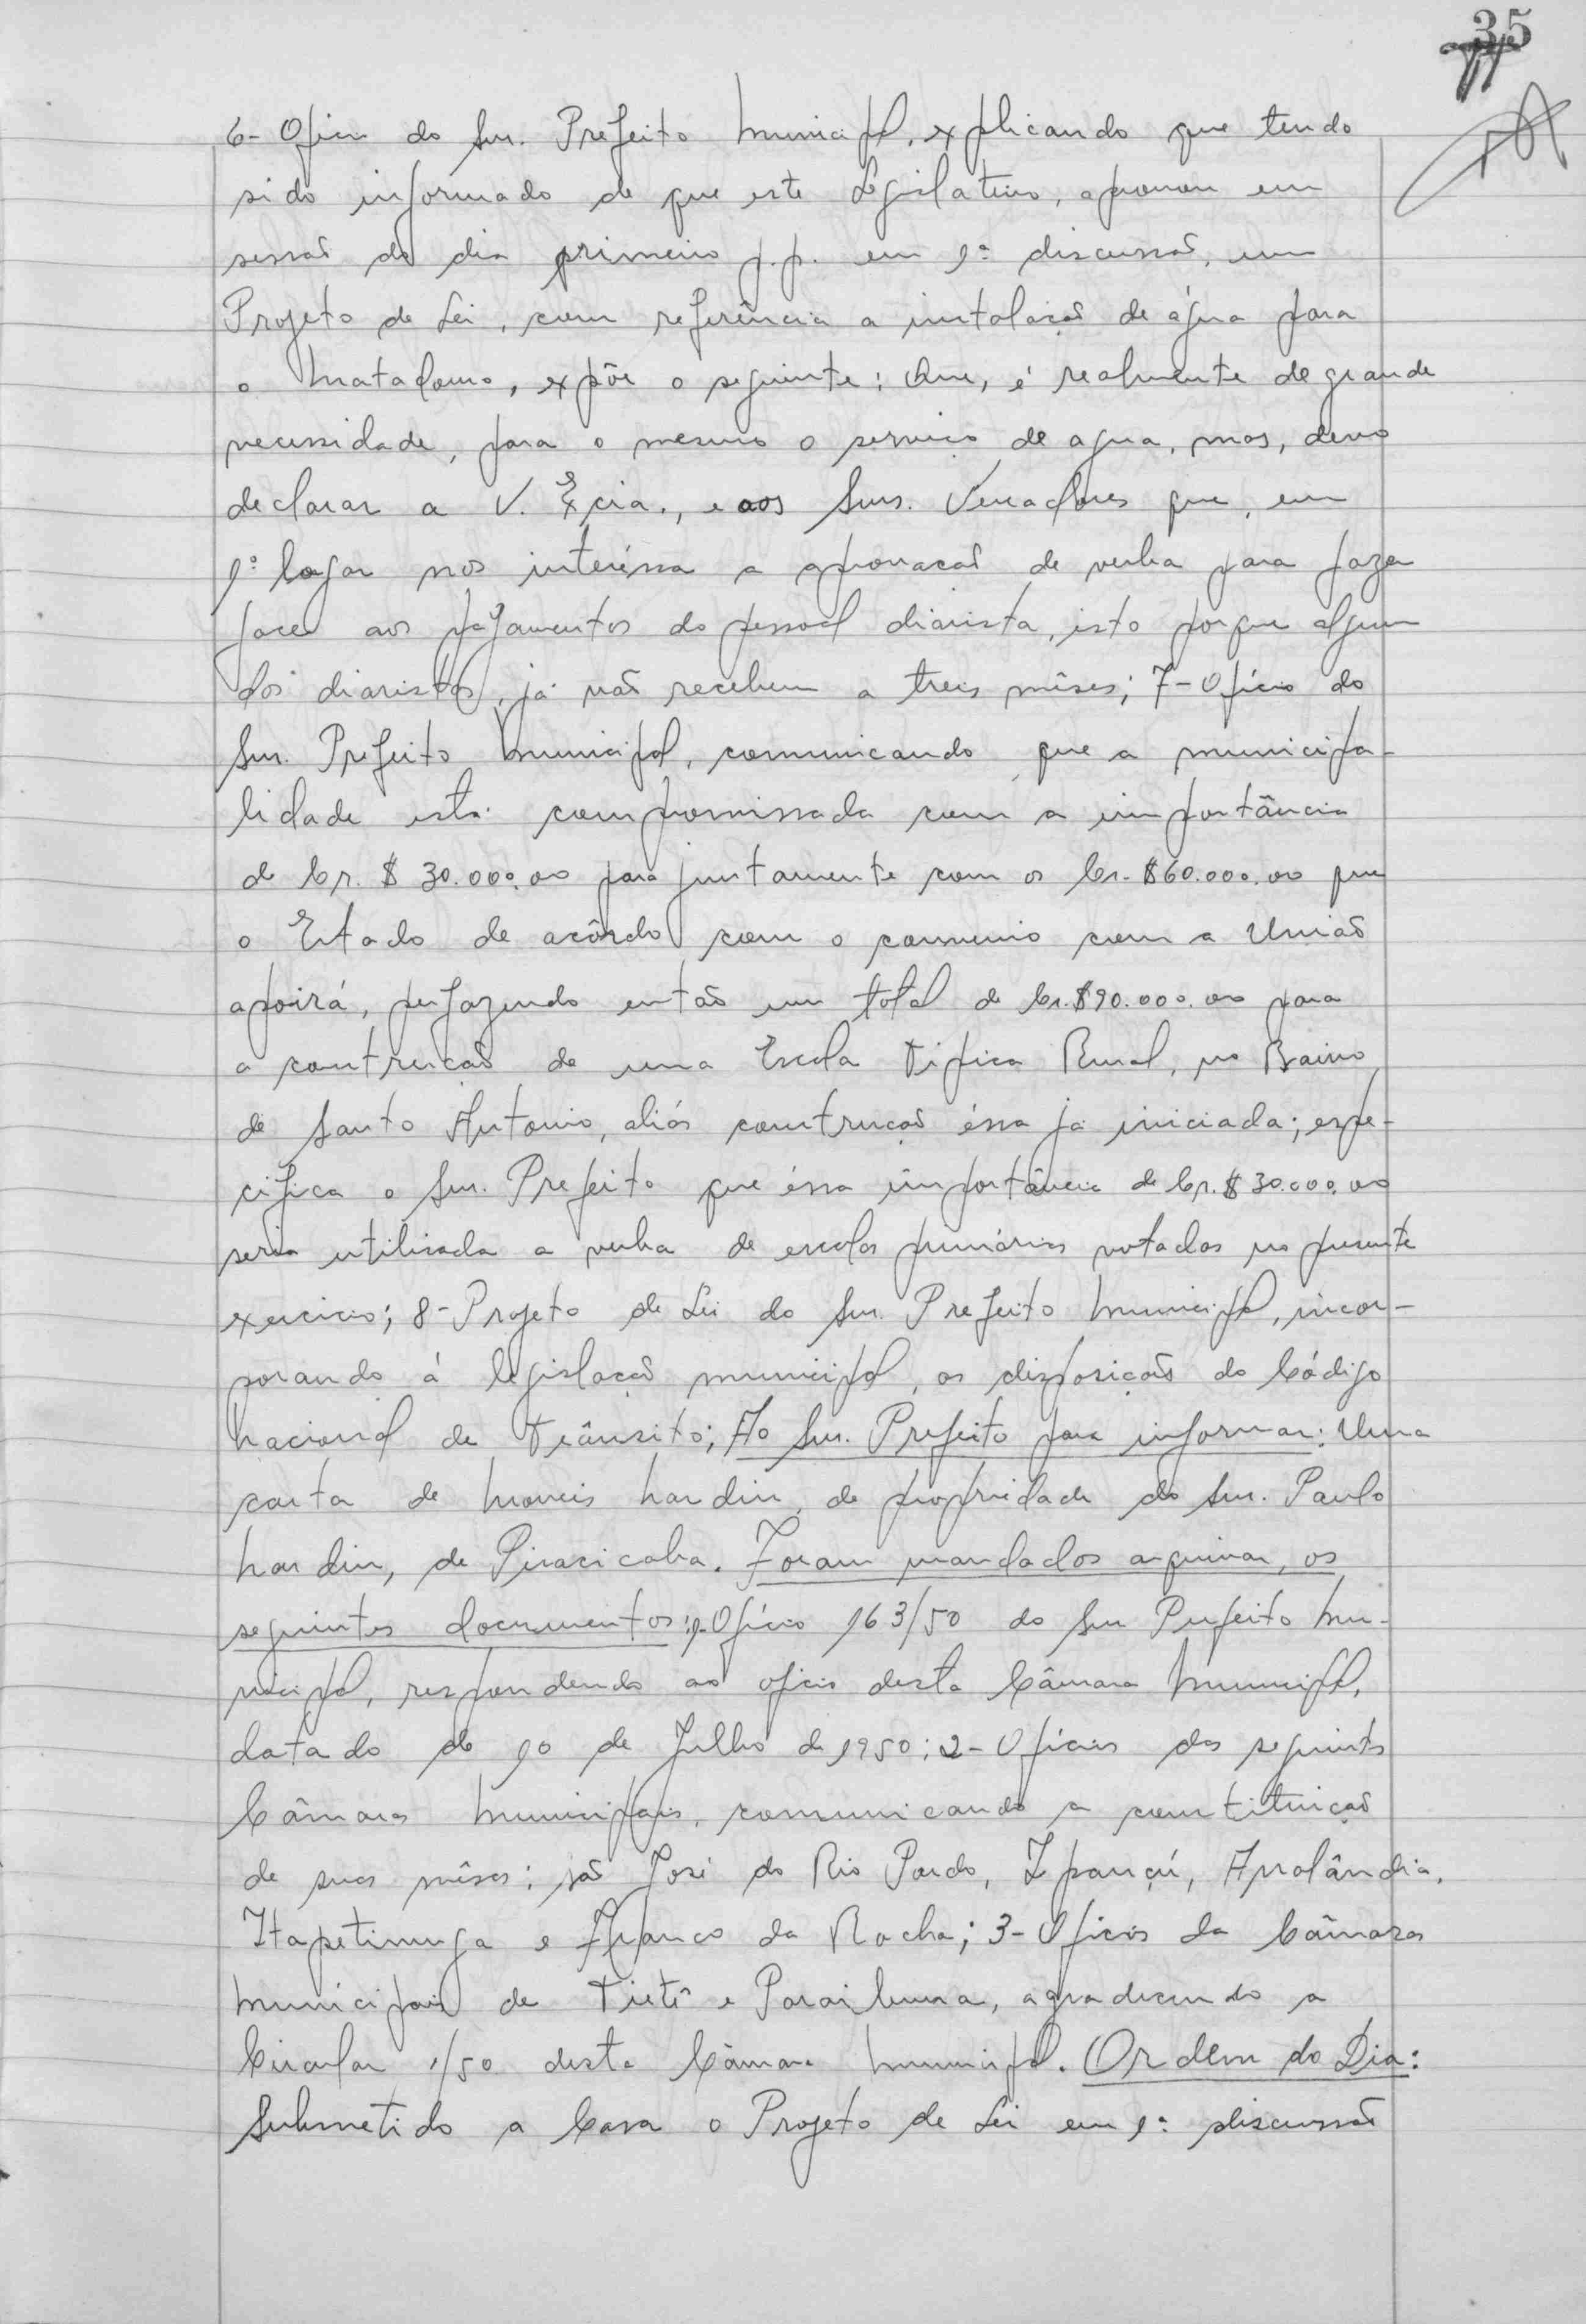 35
6- Oficio do Snr. Prefeito Municipal, explicando que tendo
sido informado de que este Legislativo, aprovou em
sessão do dia primeiro p.p. em 1ª discussão, um
Projeto de Lei, com referência a instalação de água para
o Matadouro, expõe o seguinte: Que, é realmente de grande
necessidade, para o mesmo o serviço de agua, mas, devo
declarar a V. Excia., e aos Snrs. Vereadores que, em
1º logar nos interéssa a aprovação de verba para fazer
face aos pagamentos do pessoal diarista, isto porque algum
dos diaristas, já não recebem a treis mêses; 7- Ofício do
Snr. Prefeito Municipal, comunicando que a municipa-
lidade está compromissada com a importância
de Cr.$ 30.000,00 para juntamente com os Cr.$60.000,00 que
o Estado de acôrdo com o convenio com a União
apoirá, perfazendo então um total de Cr.$90.000,00 para
a contrução de uma Escola Tipica Rural, no Bairro
de Santo Antonio, aliás contrução éssa já iniciada; espe-
cifica o Snr. Prefeito que éssa importância de Cr.$ 30.000,00
seria utilisada a verba de escolas primárias votadas no presente
exercicio; 8- Projeto de Lei do Snr. Prefeito Municipal, incor-
porando á legislação municipal, as disposições do Código
Nacional de Trânsito; Ao Snr. Prefeito para informar: Uma
carta de Moveis Nardin, de propriedade do Snr. Paulo
Nardin, de Piracicaba. Foram mandados arquivar, os
seguintes documentos: 1-Ofício 163/50 do Snr Prefeito Mu-
nicipal, respondendo ao oficio desta Câmara Municipal,
datado de 10 de Julho de 1950; 2- Ofícios das seguintes
Câmaras Municipais, comunicando a contituição
de suas mêsas: são José do Rio Pardo, Ipauçú, Analândia,
Itapetininga e Franco da Rocha; 3- Ofícios da Câmaras
Municipais de Tietê e Paraibuna, agradecendo a
Circular 1/50 desta Câmara Municipal. Ordem do Dia:
Submetido a Casa o Projeto de Lei em 1ª discussão